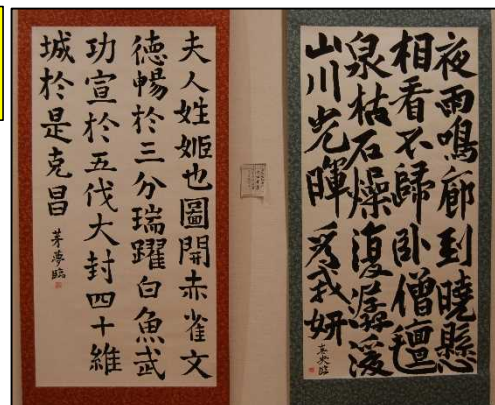 夜雨鳴廊到曉懸
相看不歸臥僧氈
泉枯石燥復潺湲
山川光暉爲我妍
夫人姓姬也圖開赤雀文
德暢於三分瑞躍白魚武
功宣於五伐大封四十維
城於是克昌